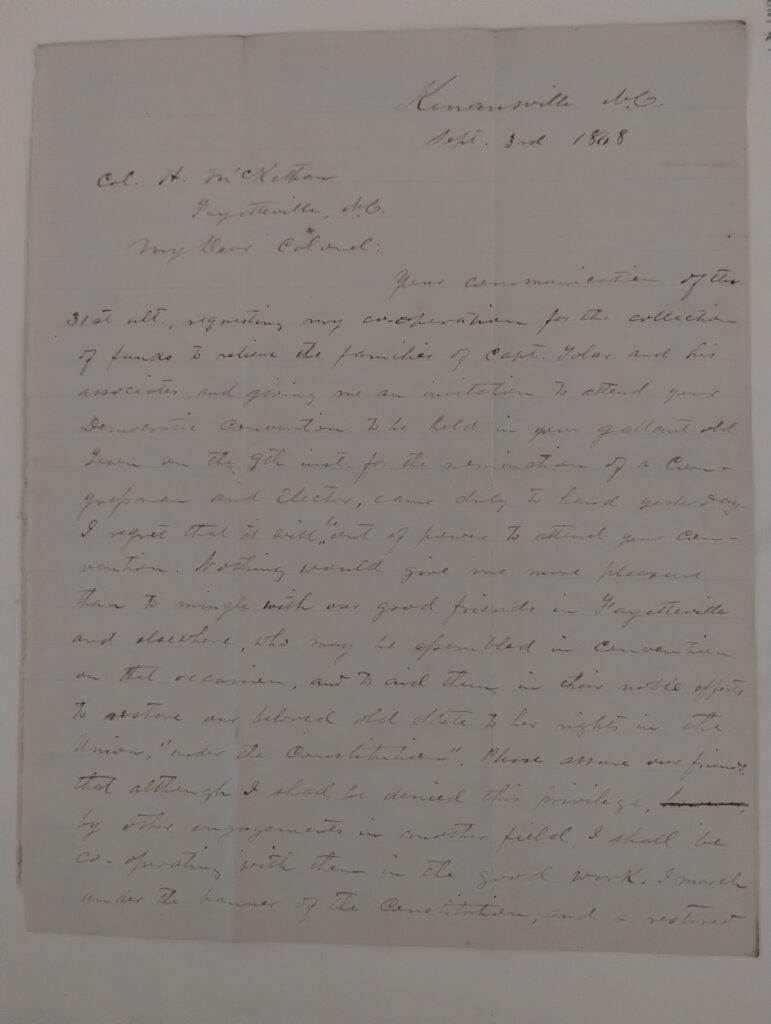 Kenansville N.C.
Sept. 3rd 1868
Col. H. McKethan
Fayetteville, N.C.
My Dear Colonel:
Your communication of the
31st ult., requesting my co-operation for the collection
of funds to relieve the families of Capt. Tolar and his
associates, and giving me an invitation to attend your
Democratic Convention to be held in your gallant old
Town on the 9th inst. for the nomination of a Con-
gressman and Elector, came duly to hand yesterday.
I regret that it will be out of power to attend your Con-
vention. Nothing would give me more pleasure
than to mingle with our good friends in Fayetteville
and elsewhere, who may be assembled in Convention
on that occasion, and to aid them in their noble efforts
to restore our beloved old State to her rights in the
Union, "under the Constitution". Please assure our friends,
that although I shall be denied this privilege,
by other engagements in another field, I shall be
co-operating with them in the good work. I march
under the banner of the Constitution, and a restored